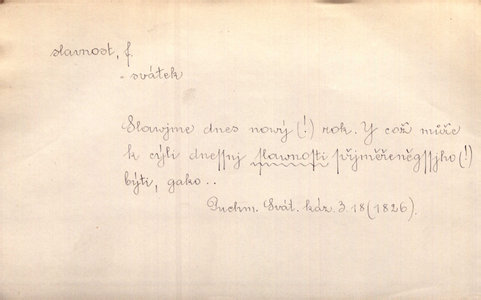 slavnost, f.
- svátek
Slawjme dnes nový (!) rok. Y což může
k cýli dnessnj slawnosti přjměřeněgssjho (!)
býti, gako..
Puchm. Svát. káz. 3. 18 (1826).